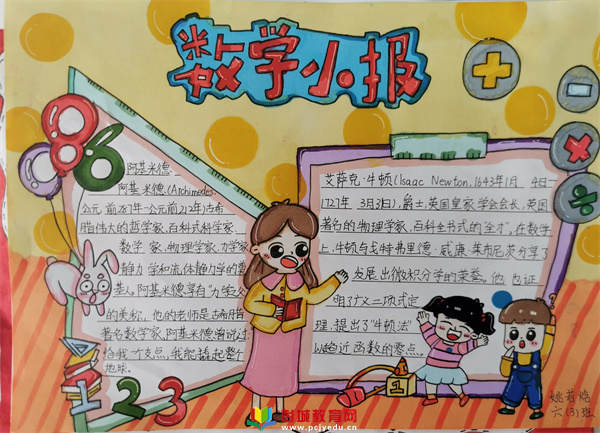 数学小报
阿基米德
阿基米德(Archimedes,
公元前287年—公元前212年)古希
腊伟大的哲学家、百科式科学家、
数学家、物理学家、力学家
静力学和流体静力学的奠
基人,阿基米德享有"力学之父"
的美称,他的老师是古希腊
著名数学家,阿基米德曾说过:
给我一个支点,我能撬起整个
地球。
艾萨克·牛顿(Isaac Newton,1643年1月4日—
1727年3月31日),爵士,英国皇家学会会长,英国
著名的物理学家,百科全书式的"全才"。在数学
上,牛顿与戈特弗里德·威廉·莱布尼茨分享了
发展出微积分学的荣誉。他也证
明了广义二项式定
理,提出了"牛顿法"
以趋近函数的零点。
1
1 2 3
姚若
六(3)班
彭城教育网
www.pcjyedu.cn